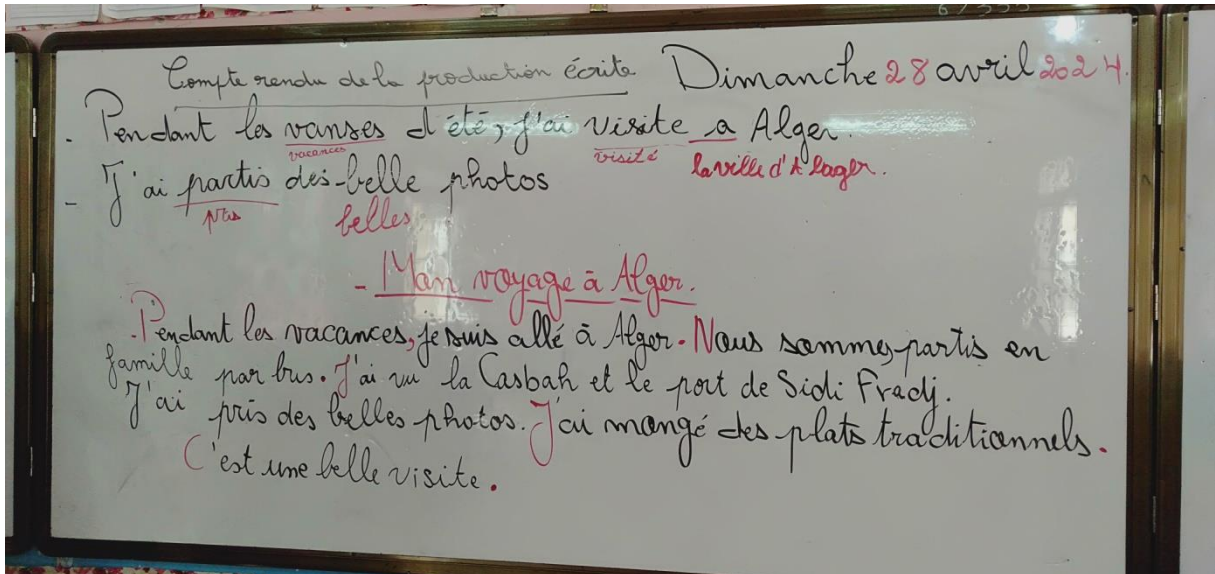 67355
Compte rendu de la production écrite Dimanche 28 avril 2024.
- Pendant les vanses d'été, j'ai visite a Alger.
vacances visité la ville d'Alager.
- J'ai partis des belle photos
pris belles
- Mon voyage à Alger.
Pendant les vacances, je suis allé à Alger. Nous sommes partis en
famille par bus. J'ai vu la Casbah et le port de Sidi Fradj.
J'ai pris des belles photos. J'ai mangé des plats traditionnels.
C'est une belle visite.